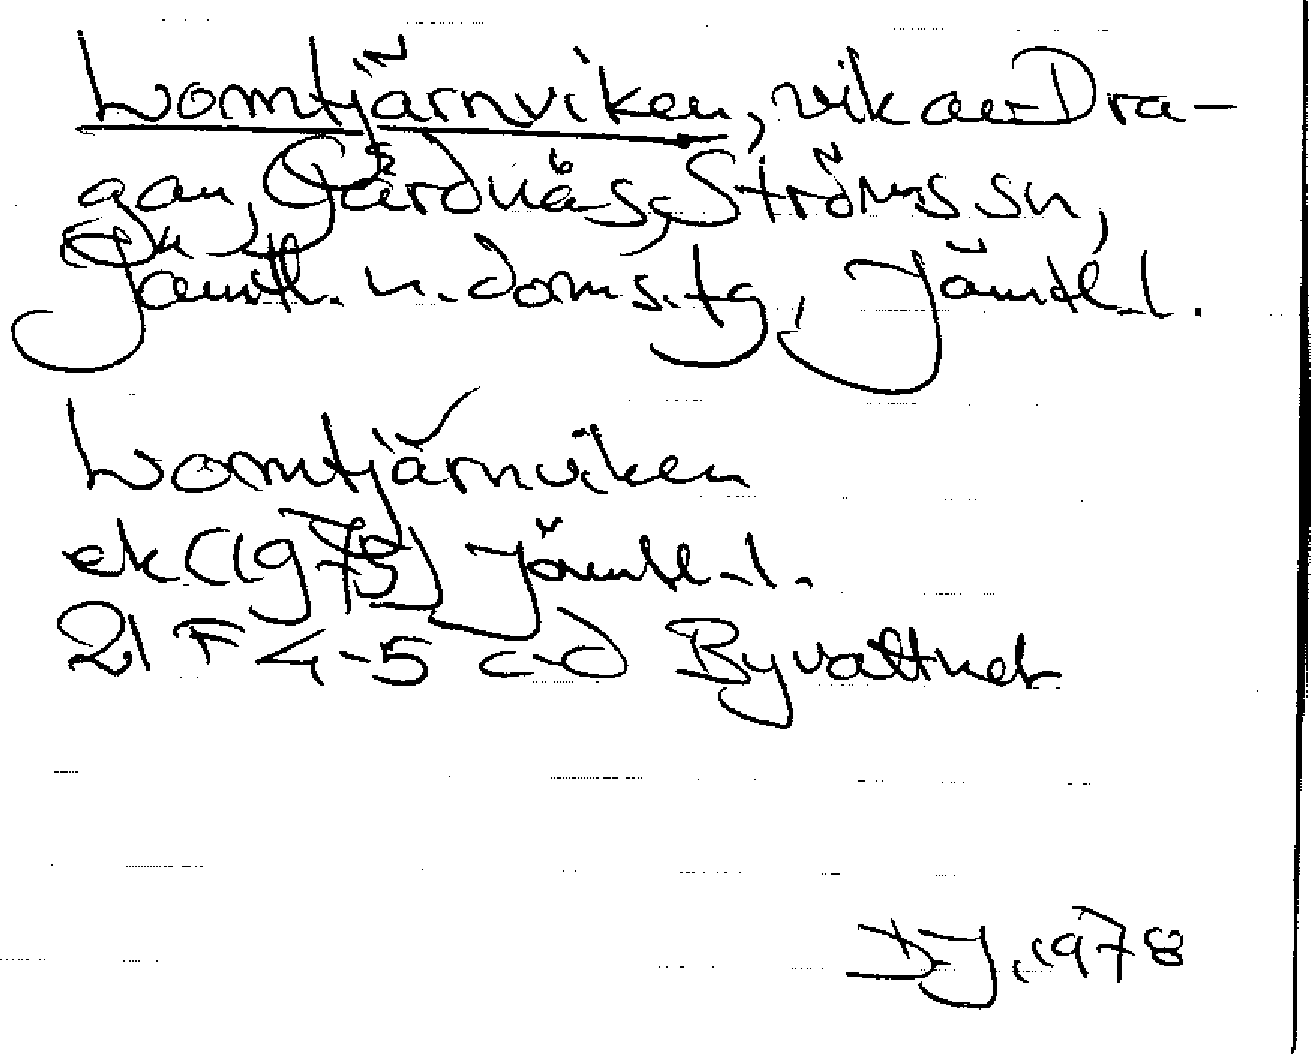 Lomtjärnviken, vik av Dra-
gan, Gärdnäs, Ströms sn,
Jämtl. n. doms.tg, Jämtl. l.
Lomtjärnviken
ek (1975) Jämtl. l.
21 F 4-5 c-d Byvattnet
DJ, 1978